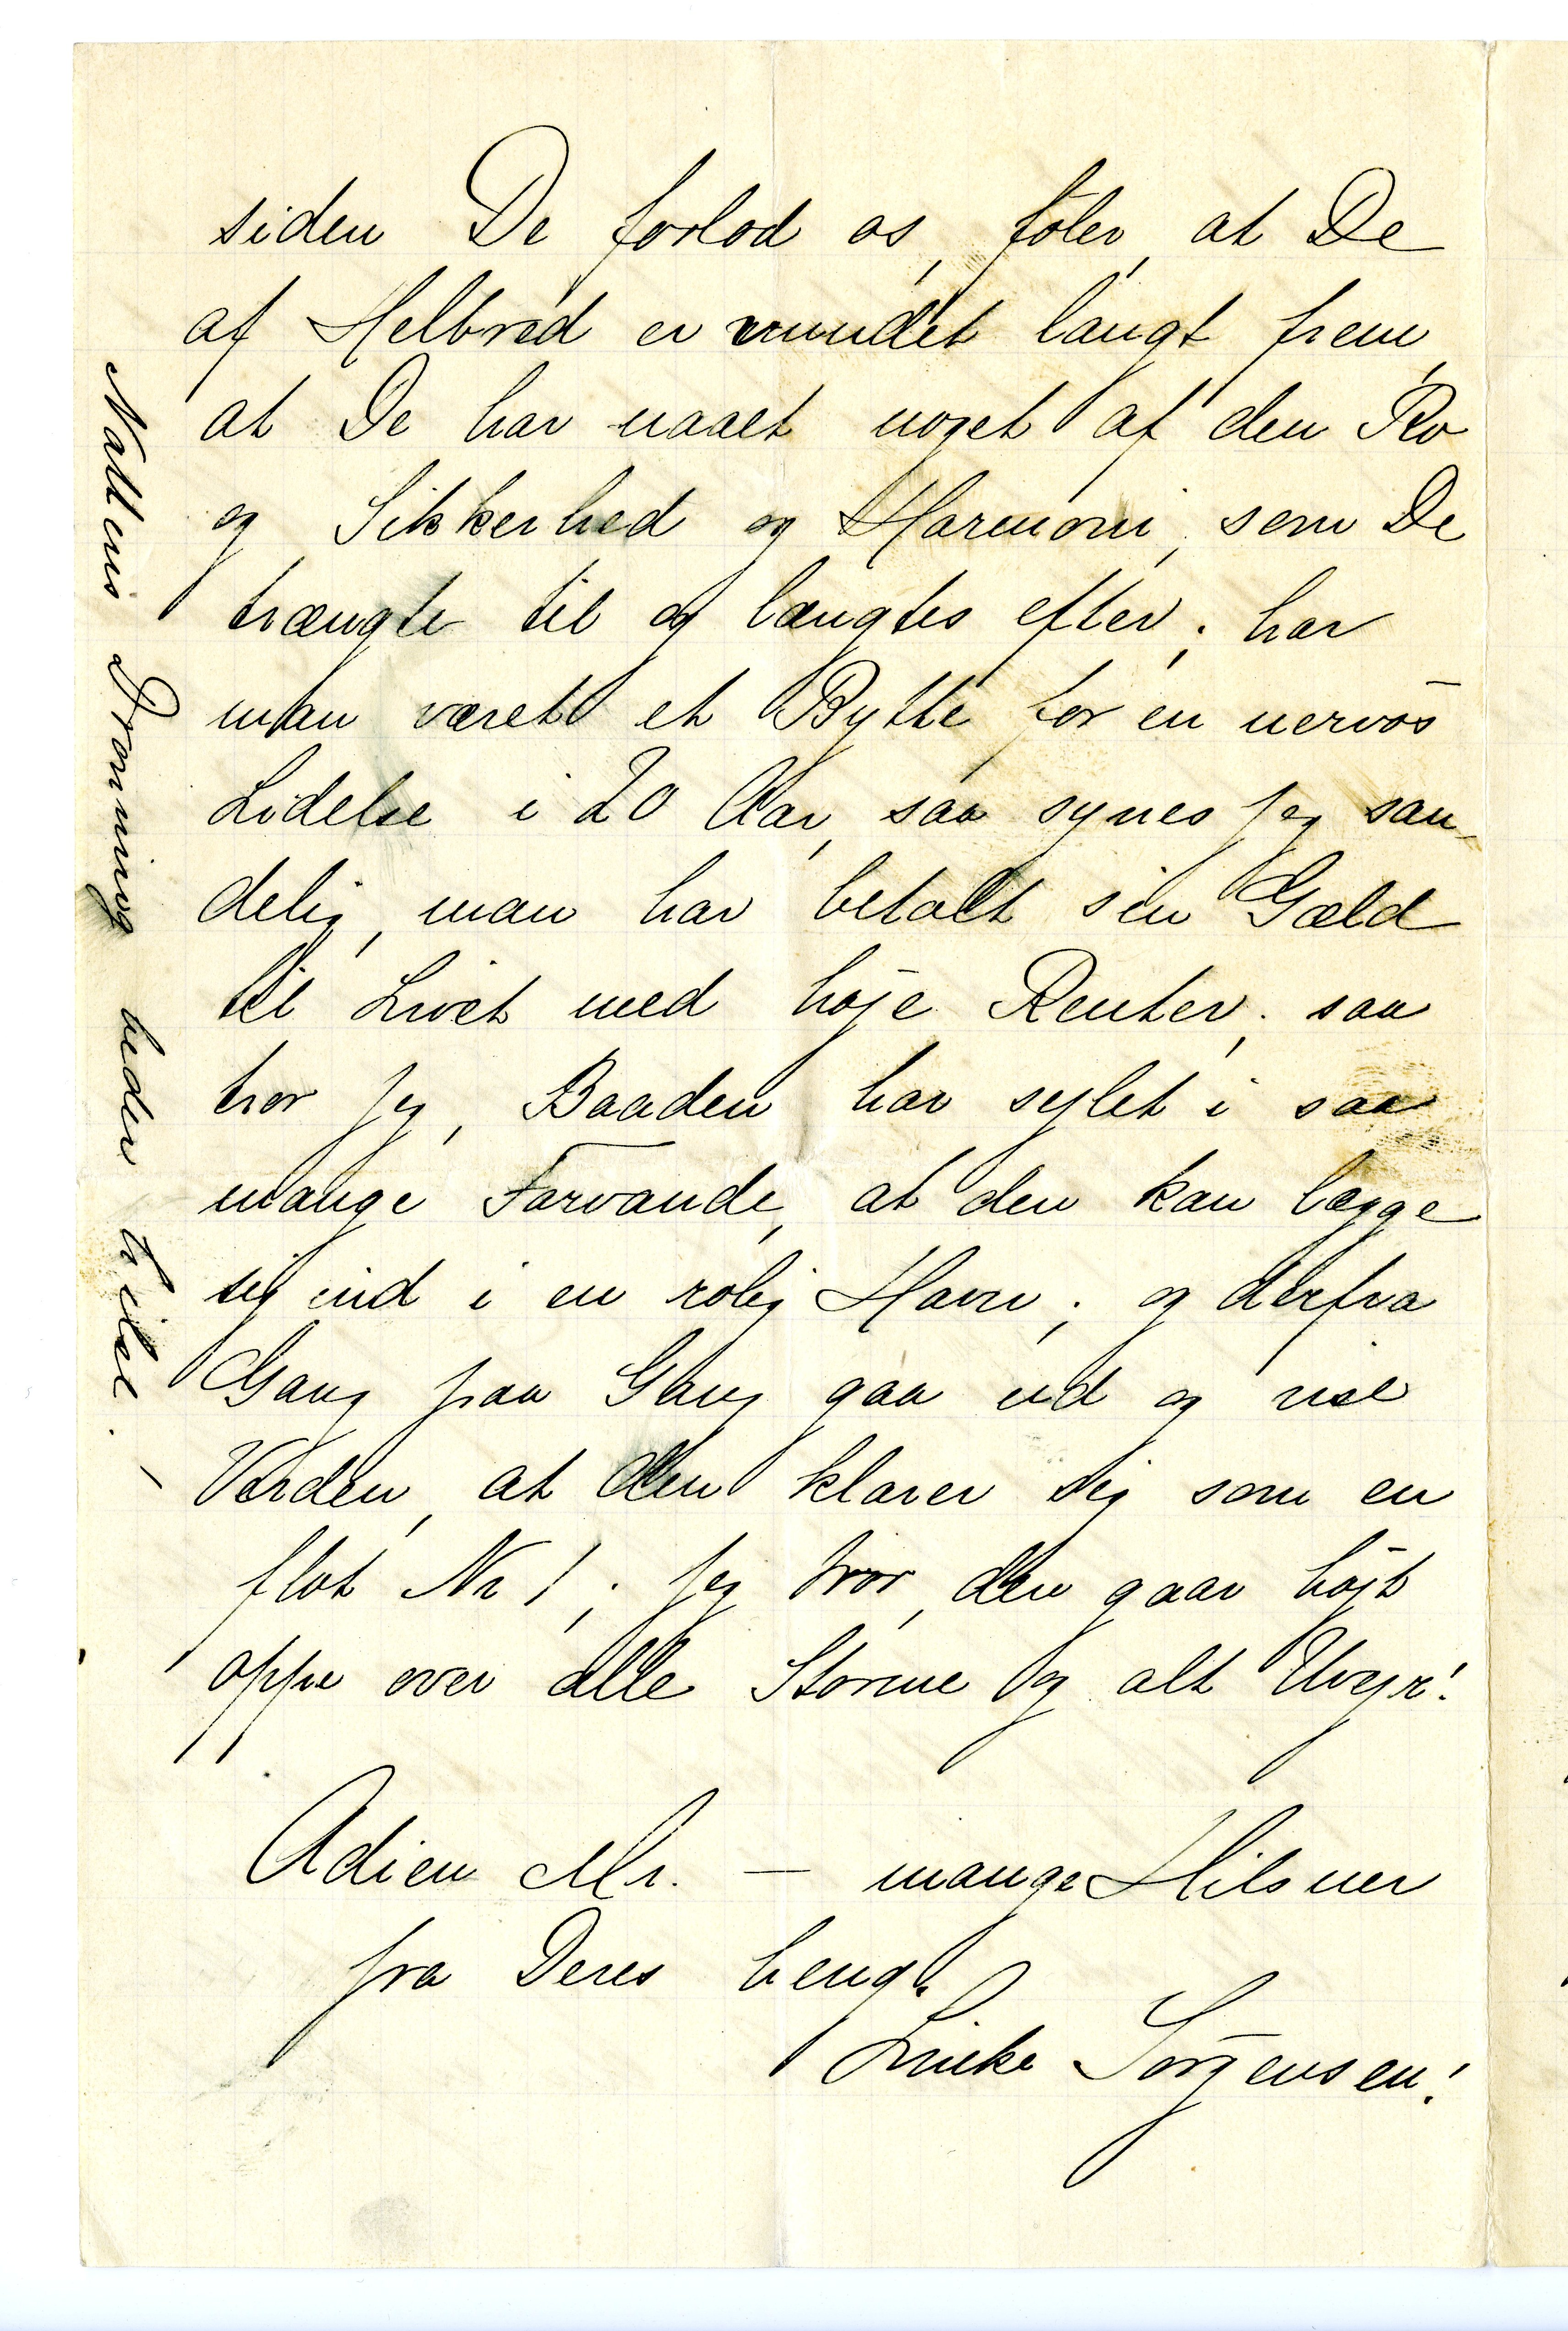 siden De forlod os, föler, at De
af Helbred er vundet langt frem,
at De har naaet noget af den Ro
og Sikkerhed og Harmoni, som De
trængte til og længtes efter; har
man været et Bytte for en nervös
Lidelse i 20 Aar, saa synes jeg san-
delig, man har betalt sin Gæld
til Livet med høje Renter; saa
tror jeg, Baaden har sejlet i saa
mange Farvande, at den kan lægge
sig ind i en rolig Havn; og derfra
Gang paa Gang gaa ud og vise
Verden, at den klarer sig som en
flot Nr 1; jeg tror, den gaar højt
oppe over alle Storme og alt Uvejr!
Adieu Mr. — mange Hilsner
fra Deres heng.
Jörgensen!
Nattens Dronning beder hilse. —